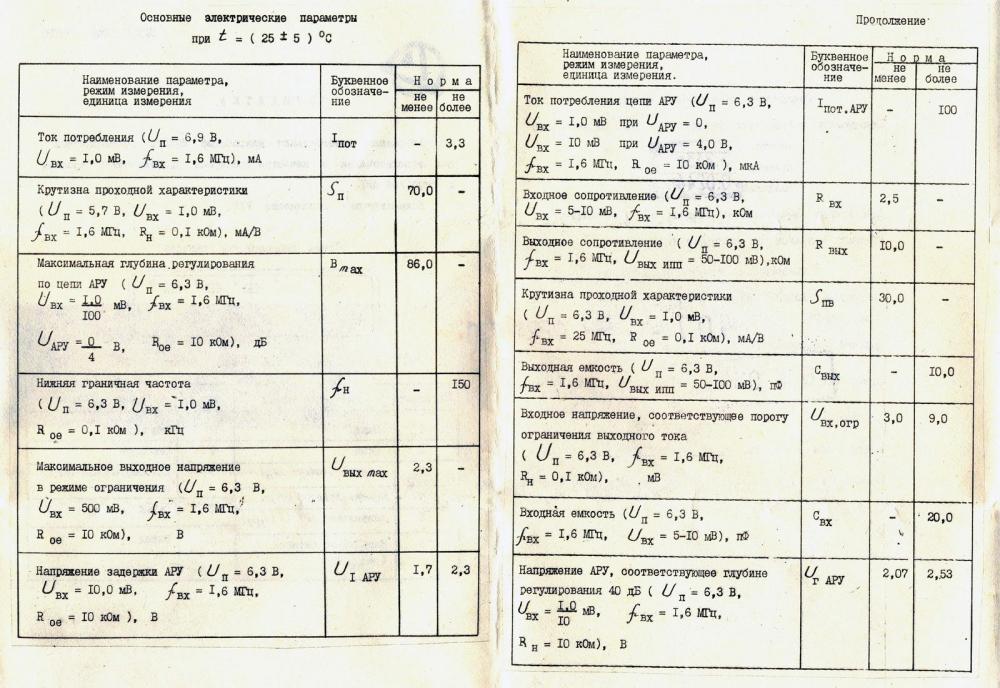 Основные электрические параметры
при t = ( 25 ± 5 ) °C
Наименование параметра,
режим измерения,
единица измерения
Буквенное
обозначе-
ние
Н о р м а
не
менее
не
более
Ток потребления (Uп = 6,9 В,
Uвх = I,0 мВ, fвх = I,6 МГц), мА
Iпот
–
3,3
Крутизна проходной характеристики
( Uп = 5,7 В, Uвх = I,0 мВ,
fвх = I,6 МГц, Rн = 0,I кОм), мА/В
Sп
70,0
–
Максимальная глубина регулирования
по цепи АРУ ( Uп = 6,3 В,
Uвх = I,0/I00 мВ, fвх = I,6 МГц,
UАРУ = 0/4 В, Rое = I0 кОм), дБ
Bmax
86,0
–
Нижняя граничная частота
( Uп = 6,3 В, Uвх = I,0 мВ,
Rое = 0,I кОм ), кГц
fн
–
I50
Максимальное выходное напряжение
в режиме ограничения (Uп = 6,3 В,
Uвх = 500 мВ, fвх = I,6 МГц,
Rое = I0 кОм), В
Uвых max
2,3
–
Напряжение задержки АРУ ( Uп = 6,3 В,
Uвх = I0,0 мВ, fвх = I,6 МГц,
Rое = I0 кОм ), В
UI АРУ
I,7
2,3
Продолжение
Наименование параметра,
режим измерения,
единица измерения.
Буквенное
обозначе-
ние
Н о р м а
не
менее
не
более
Ток потребления цепи АРУ (Uп = 6,3 В,
Uвх = I,0 мВ при UАРУ = 0,
Uвх = I0 мВ при UАРУ = 4,0 В,
fвх = I,6 МГц, Rое = I0 кОм ), мкА
Iпот.АРУ
–
I00
Входное сопротивление (Uп = 6,3 В,
Uвх = 5-I0 мВ, fвх = I,6 МГц), кОм
Rвх
2,5
–
Выходное сопротивление ( Uп = 6,3 В,
fвх = I,6 МГц, Uвых ипп = 50-I00 мВ),кОм
Rвых
I0,0
–
Крутизна проходной характеристики
( Uп = 6,3 В, Uвх = I,0 мВ,
fвх = 25 МГц, Rое = 0,I кОм), мА/В
Sпв
30,0
–
Выходная емкость ( Uп = 6,3 В,
fвх = I,6 МГц, Uвых ипп = 50-I00 мВ), пФ
Cвых
–
I0,0
Входное напряжение, соответствующее порогу
ограничения выходного тока
( Uп = 6,3 В, fвх = I,6 МГц,
Rн = 0,I кОм), мВ
Uвх,огр
3,0
9,0
Входная емкость (Uп = 6,3 В,
fвх = I,6 МГц, Uвх = 5-I0 мВ), пФ
Cвх
–
20,0
Напряжение АРУ, соответствующее глубине
регулирования 40 дБ ( Uп = 6,3 В,
Uвх = I,0/I0 мВ, fвх = I,6 МГц,
Rн = I0 кОм), В
Uг АРУ
2,07
2,53